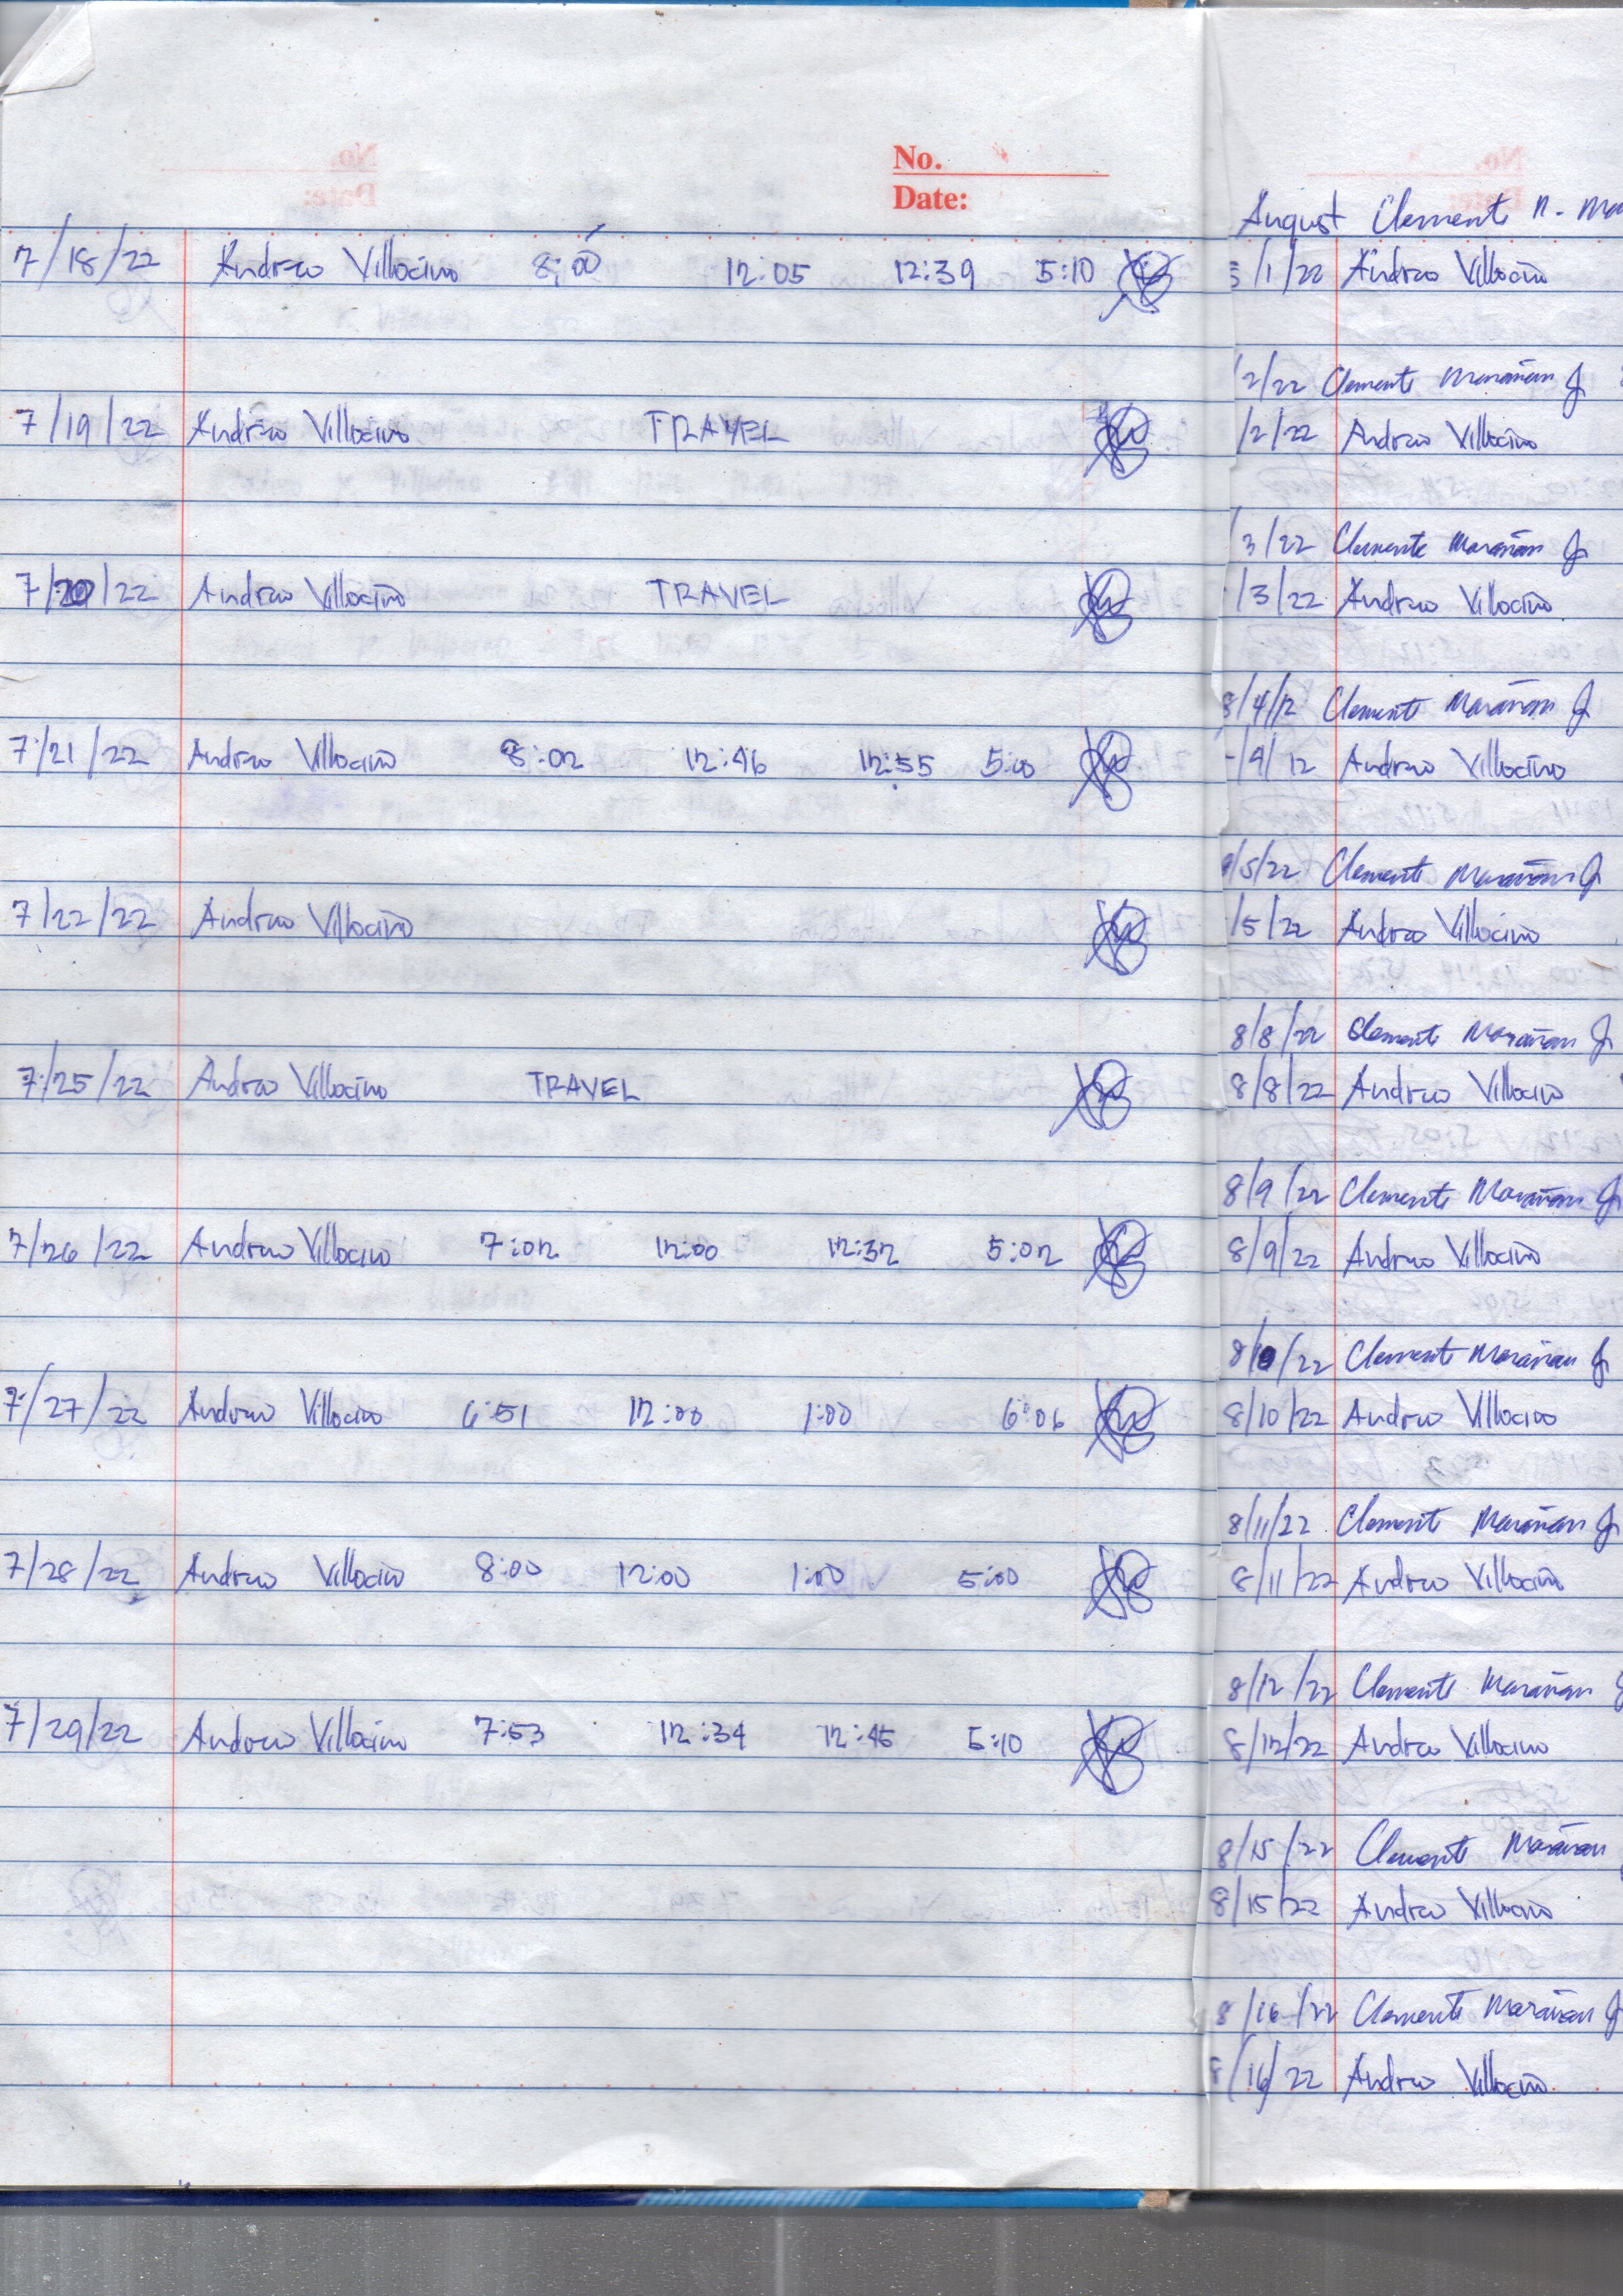 No.
Date:
7/18/22 Andrew Villocino 8:00 12:05 12:39 5:10
7/19/22 Andrew Villocino TRAVEL
7/20/22 Andrew Villocino TRAVEL
7/21/22 Andrew Villocino 8:02 12:46 12:55 5:00
7/22/22 Andrew Villocino
7/25/22 Andrew Villocino TRAVEL
7/26/22 Andrew Villocino 7:02 12:00 12:32 5:02
7/27/22 Andrew Villocino 6:51 12:00 1:00 6:06
7/28/22 Andrew Villocino 8:00 12:00 1:00 5:00
7/29/22 Andrew Villocino 7:53 12:34 12:45 5:10
August Clemente
/1/22 Andrew Villocino
/2/22 Clemente Marañan Jr
/2/22 Andrew Villocino
/3/22 Clemente Marañan Jr
/3/22 Andrew Villocino
8/4/12 Clemente Marañan Jr
/4/12 Andrew Villocino
/5/22 Clemente Marañan Jr
/5/22 Andrew Villocino
8/8/22 Clemente Marañan Jr
8/8/22 Andrew Villocino
8/9/22 Clemente Marañan Jr
8/9/22 Andrew Villocino
8/10/22 Clemente Marañan Jr
8/10/22 Andrew Villocino
8/11/22 Clemente Marañan Jr
8/11/22 Andrew Villocino
8/12/22 Clemente Marañan
8/12/22 Andrew Villocino
8/15/22 Clemente Marañan
8/15/22 Andrew Villocino
8/16/22 Clemente Marañan Jr
8/16/22 Andrew Villocino